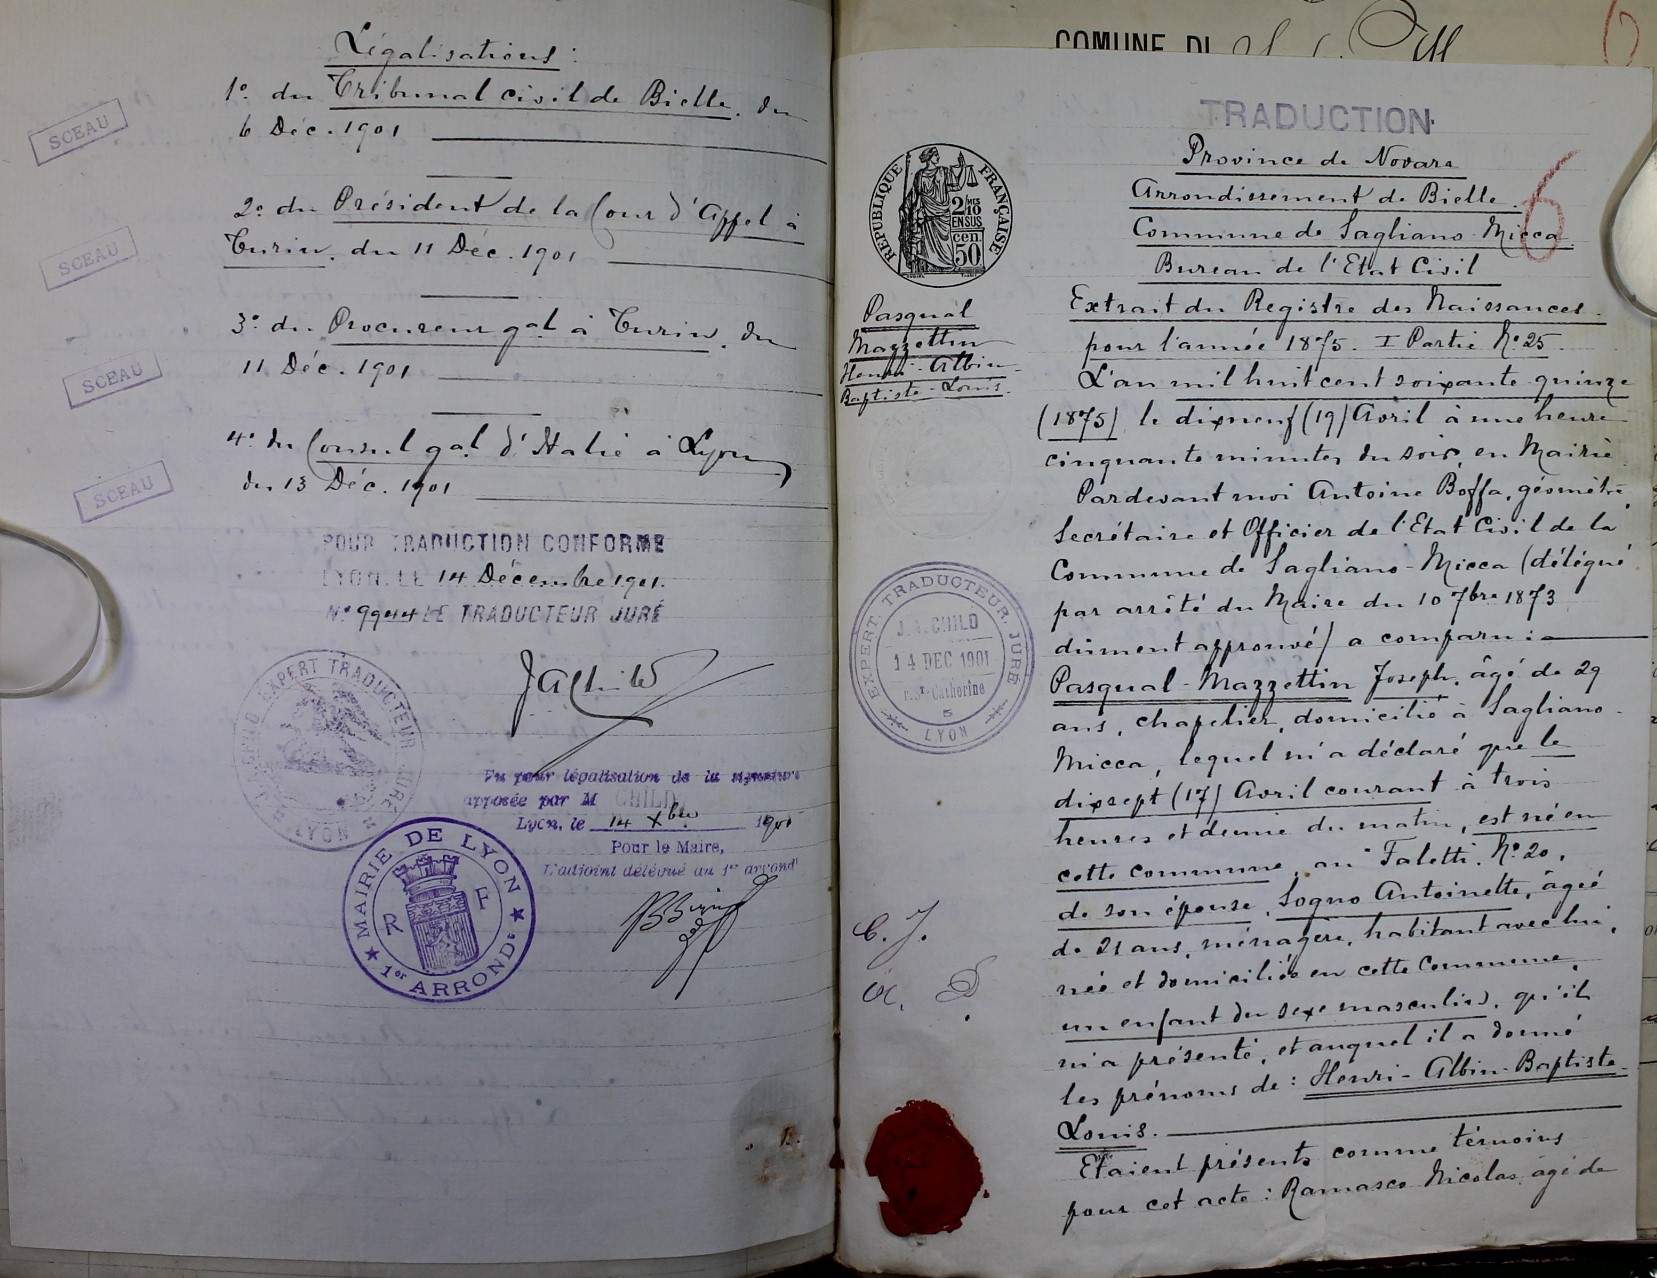 Légalisations :
1º. du Tribunal civil de Bielle. du
6 Déc. 1901
SCEAU
2º. du Président de la Cour d'Appel à
Turin. du 11 Déc. 1901
SCEAU
3º. du Procureur gal. à Turin. du
11 Déc. 1901
SCEAU
4º. du Consul gal. d'Italie à Lyon
du 13 Déc. 1901
SCEAU
POUR TRADUCTION CONFORME
LYON, LE 14 Décembre 1901.
Nº 9944 LE TRADUCTEUR JURÉ
JAChild
EXPERT TRADUCTEUR JURÉ
LYON
Vu pour légalisation de la signature
apposée par M CHILD
Lyon, le 14 Xbre 1901
Pour le Maire,
L'adjoint délégué au 1er arrondt
MAIRIE DE LYON
R F
1er ARRONDt
COMUNE DI
TRADUCTION
6
Province de Novare
Arrondissement de Bielle.
Commune de Sagliano-Micca
Bureau de l'Etat Civil
RÉPUBLIQUE FRANÇAISE
2/10 MES
EN SUS
50 cen
Pasqual
Mazzettin
Henri-Albin-
Baptiste-Louis.
Extrait du Registre des Naissances.
pour l'année 1875. I Partie Nº. 25
L'an mil huit cent soixante quinze
(1875) le dixneuf (19) Avril à une heure
cinquante minutes du soir, en Mairie.
Pardevant moi Antoine Boffa, géomètre,
Secrétaire et Officier de l'Etat Civil de la
Commune de Sagliano-Micca (délégué
par arrêté du Maire du 10 7bre 1873
dûment approuvé) a comparu :
Pasqual-Mazzettin Joseph, âgé de 29
ans, chapelier, domicilié à Sagliano-
Micca, lequel m'a déclaré que le
dixsept (17) Avril courant à trois
heures et demie du matin, est né en
cette commune, au Faletti. Nº. 20,
de son épouse, Sogno Antoinette, âgée
de 21 ans, ménagère, habitant avec lui,
née et domiciliée en cette Commune,
un enfant du sexe masculin, qu'il
m'a présenté, et auquel il a donné
les prénoms de : Henri-Albin-Baptiste-
Louis.
Etaient présents comme témoins
pour cet acte : Ramasco Nicolas, âgé de
EXPERT, TRADUCTEUR, JURÉ
J.A. CHILD
14 DEC 1901
Catherine
5
LYON